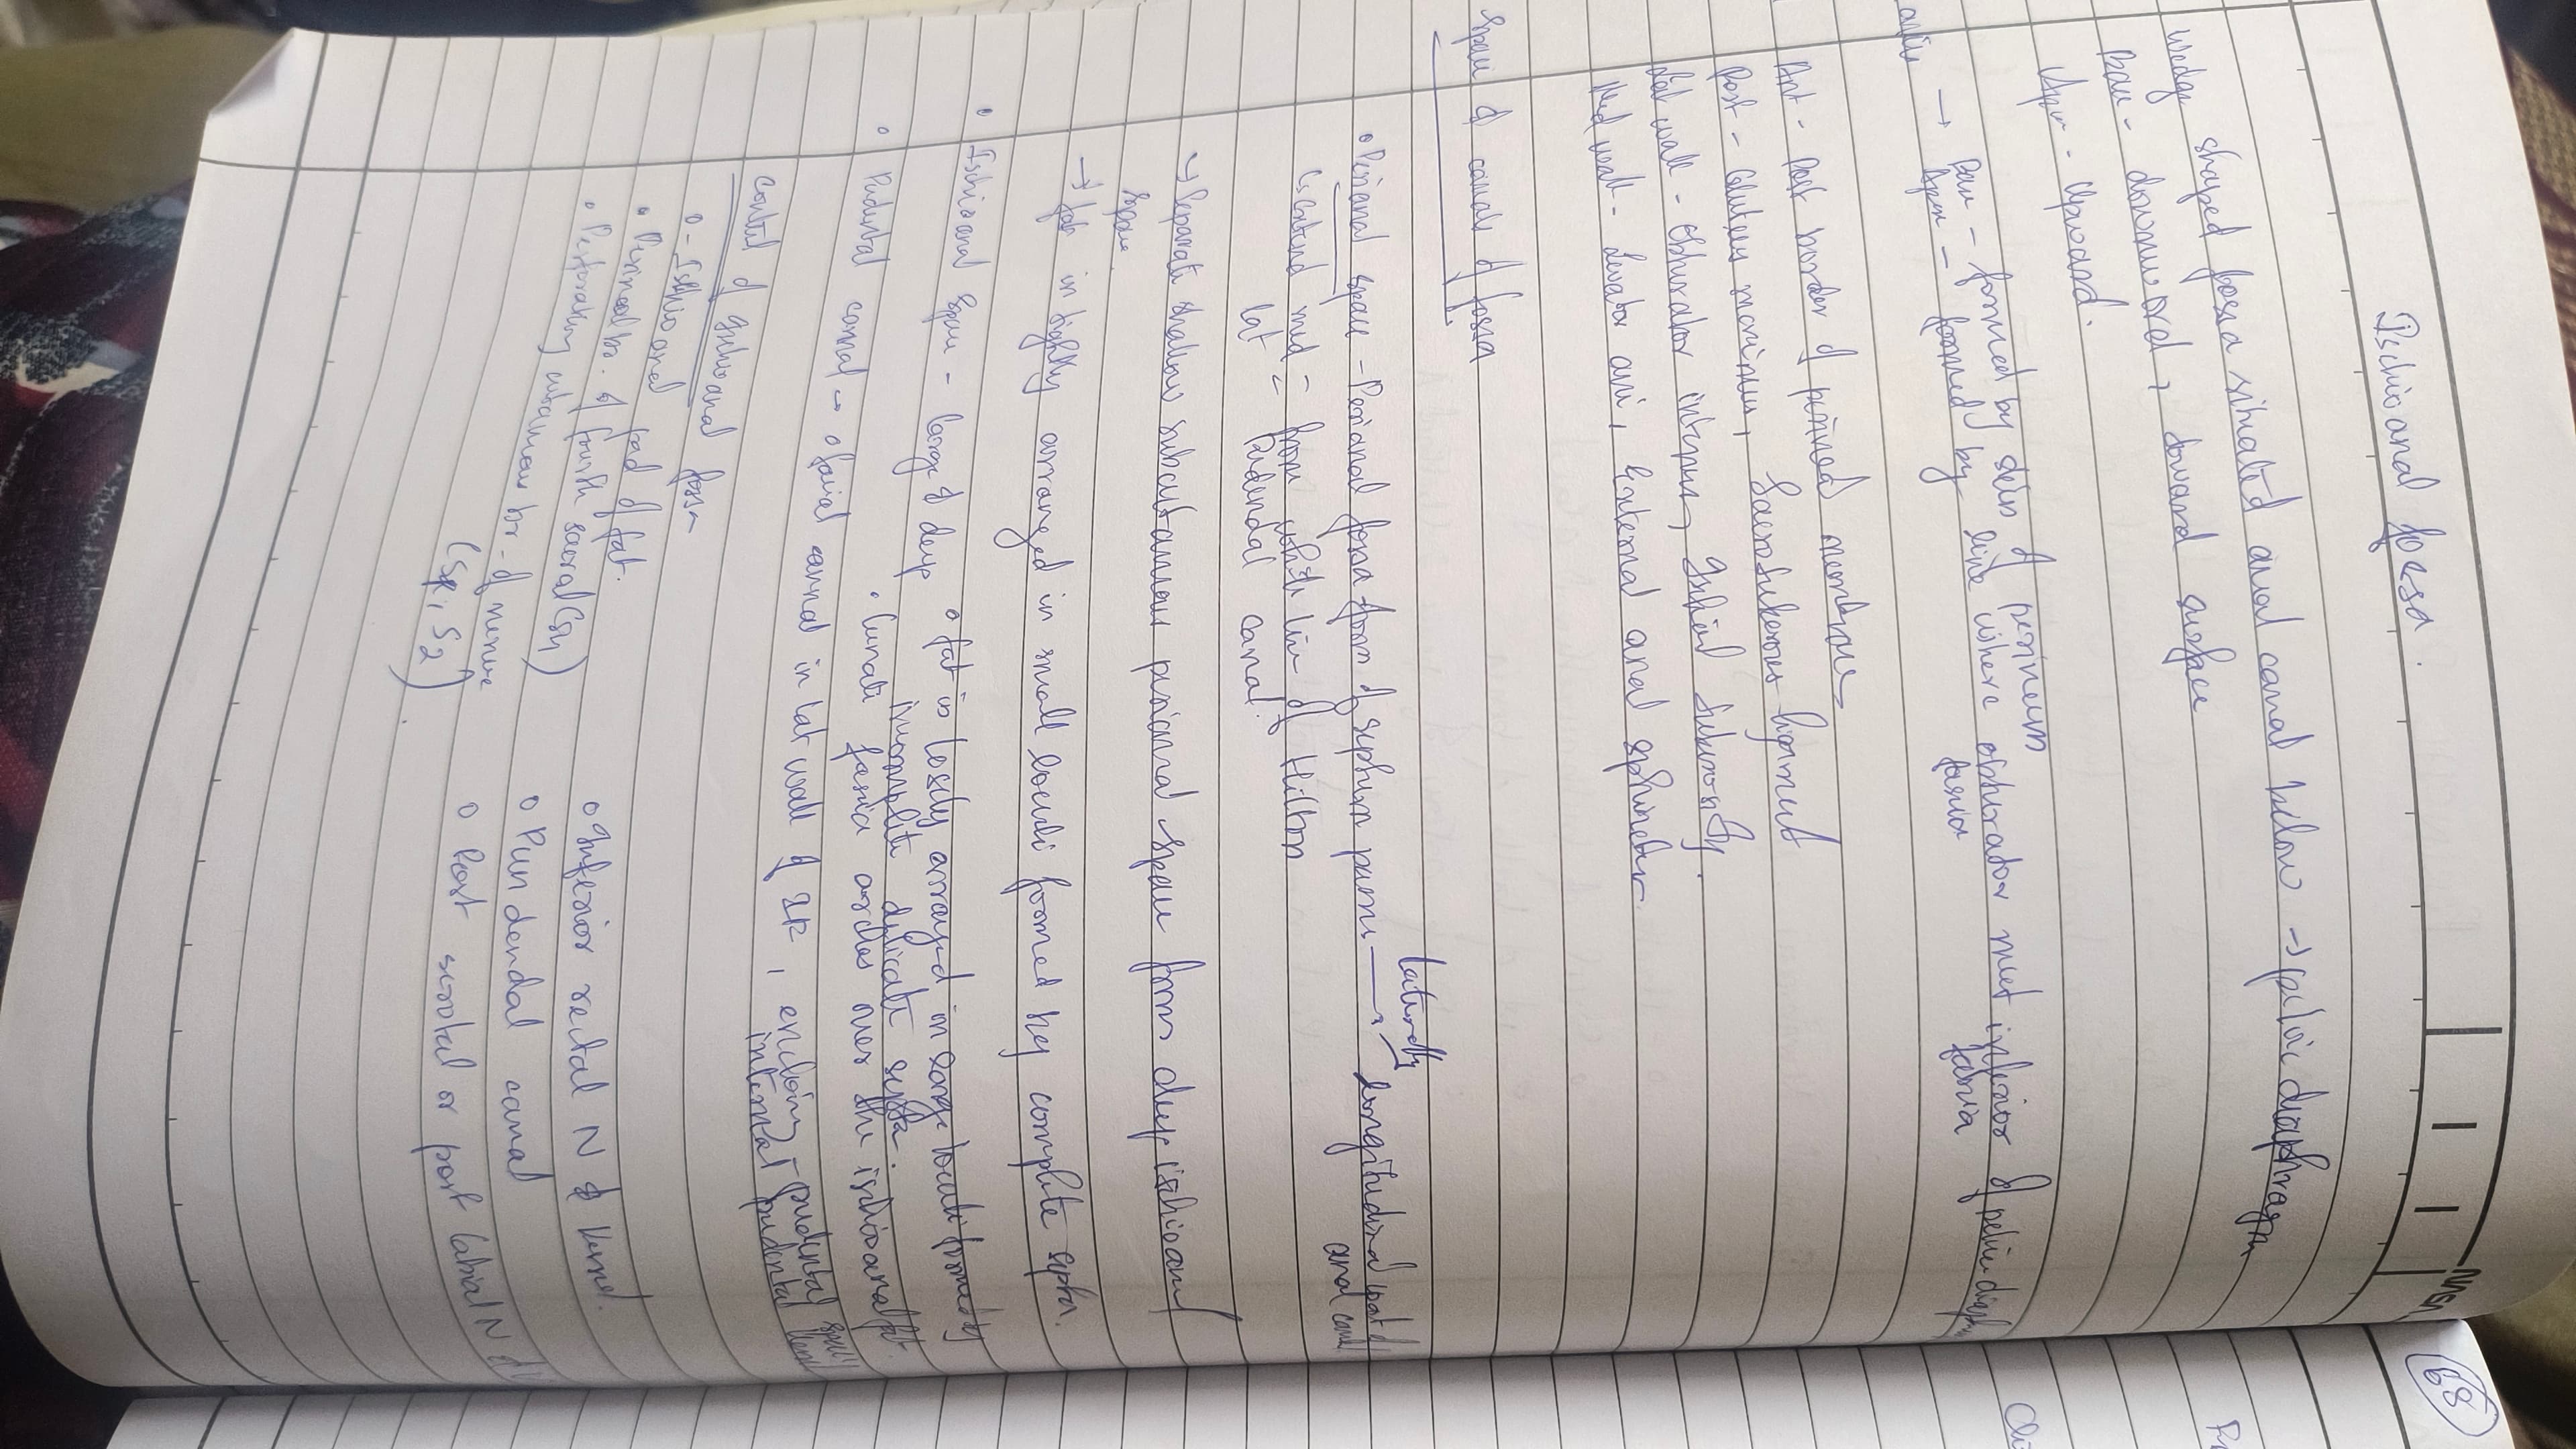 Ischioanal fossa.
wedge shaped fossa situated anal canal below → pelvic diaphragm
Base - downward, toward surface
Apex - Upward.
→ Base - formed by skin of perineum
Apex - formed by line where obturator fascia meet inferior fascia of pelvic diaphr
Ant - Post border of perineal membrane
Post - Gluteus maximus, Sacrotuberous ligament
Lat wall - Obturator internus, Ischial tuberosity.
Med wall - Levator ani, External anal sphincter.
Space & canals of fossa
• Perianal space - Perianal fossa form of septum passes laterally → Longitudinal coat of anal canal
↳ Extend med - from white line of Hilton
lat - Pudendal canal.
↳ Separate shallow subcutaneous perianal space from deep ischioanal
space.
→ fat in tightly arranged in small loculi formed by complete septa.
• Ischioanal space - large & deep • fat is losely arranged in large loculi formed by
incomplete delicate septa.
• Lunate fascia arches over the ischioanal fat.
• Pudendal canal → fascial canal in lat wall of IR, enclosing pudendal
internal pudendal
Content of ischioanal fossa
• Ischioanal pad of fat.
• Perineal br. of fourth sacral (S4)
• Perforating cutaneous br. of nerve
(S2)
• Inferior rectal N &
• Pundendal canal
• Post scrotal or post labial N &
MSN
68